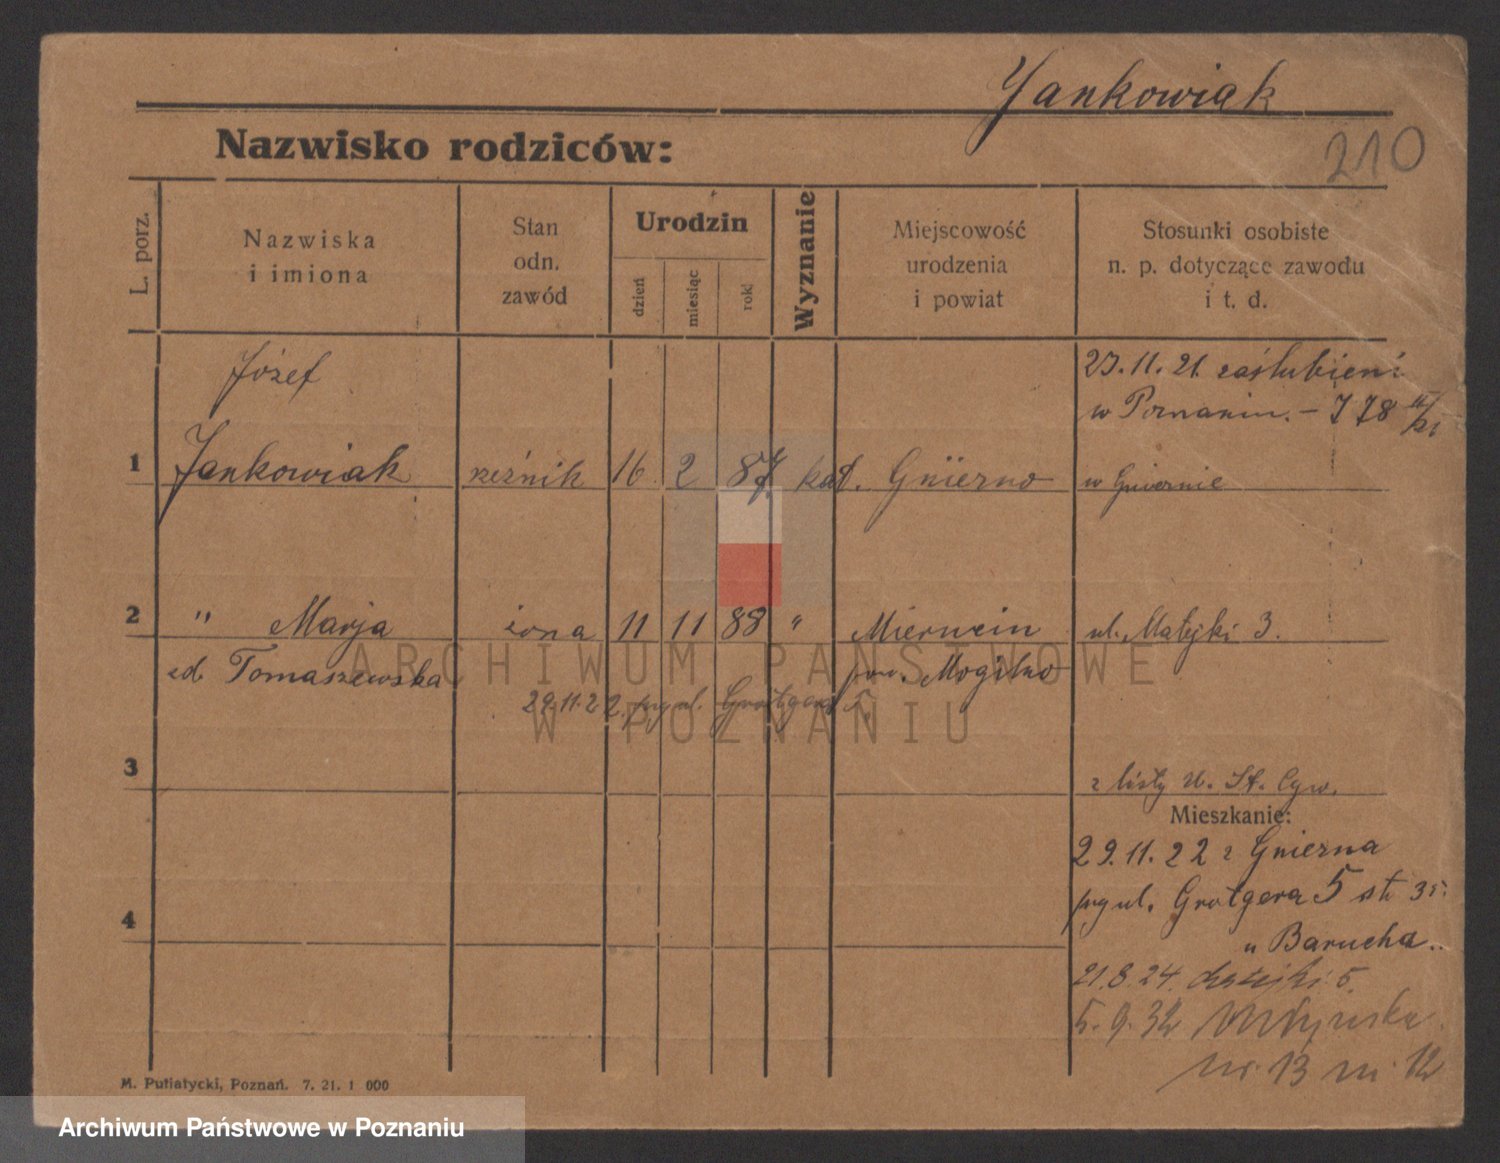 Jankowiak
210
Nazwisko rodziców:
L. porz.
Nazwiska
i imiona
Stan
odn.
zawód
Urodzin
dzień
miesiąc
rok
Wyznanie
Miejscowość
urodzenia
i powiat
Stosunki osobiste
n. p. dotyczące zawodu
i t. d.
1
Józef
Jankowiak
rzeźnik
16
2
87
kat.
Gniezno
23.11.21 zaślubieni
w Poznaniu. - 778
w Gnieznie
2
" Marja
zd. Tomaszewska
żona
11
11
88
"
Mierucin
pow. Mogilno
ul. Matejki 3.
29.11.22. ul. Grottgera
ARCHIWUM PAŃSTWOWE
W POZNANIU
3
z listy U. St. Cyw.
Mieszkanie:
29.11.22 z Gniezna
ul. Grotgera 5
u Barucha
4
21.8.24. 5.
5.9.32
nr. 13 m. 12
M. Putiatycki, Poznań. 7. 21. 1 000
Archiwum Państwowe w Poznaniu